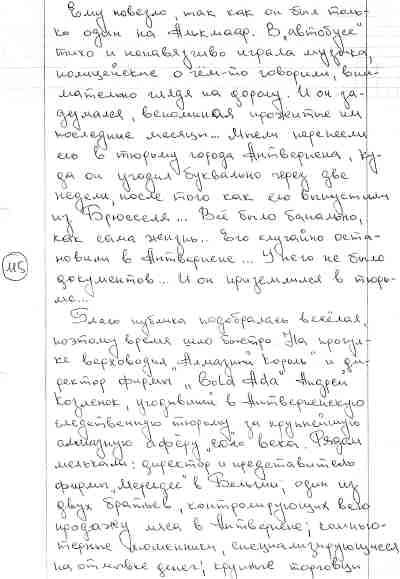 Ему повезло, так как он был толь-
ко один на Алкмаар. В „автобусе"
тихо и ненавязчиво играла музыка,
полицейские о чём-то говорили, вни-
мательно глядя на дорогу. И он за-
думался, вспоминая прожитые им
последние месяцы... Мысли перенесли
его в тюрьму города Антверпена, ку-
да он угодил буквально через две
недели, после того как его выпустили
из Брюсселя... Всё было банально,
как сама жизнь... Его случайно оста-
новили в Антверпене... У него не было
документов... И он приземлился в тюрь-
ме...
115
Благо публика подобралась весёлая,
поэтому время шло быстро. На прогул-
ке верховодил „Алмазный Король" и ди-
ректор фирмы „Bold Ada" Андрей
Козленок, угодивший в Антверпенскую
следственную тюрьму за крупнейшую
алмазную афёру „века. Рядом
мелькали: директор и представитель
фирмы „Мерседес" в Бельгии; один из
двух братьев, контролирующих всю
продажу мяса в Антверпене; компью-
терные мошенники, специализирующиеся
на отмывке денег; крупные торговцы